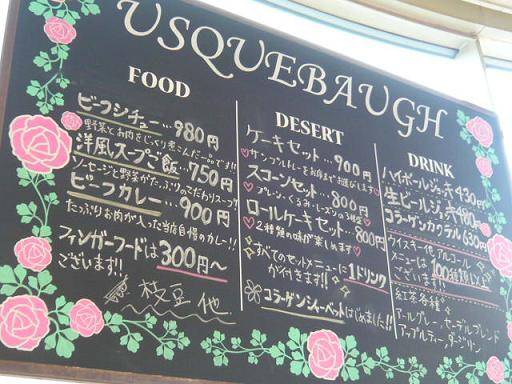 USQUEBAUGH
FOOD
ビーフシチュー…980円
野菜とお肉をじっくり煮こんだ一品です!!
洋風スープご飯…750円
ソーセージと野菜がたっぷりのこだわりスープ
ビーフカレー…900円
たっぷりお肉が入った当店自慢のカレー!!
フィンガーフードは300円〜
ございます!!
枝豆 他
DESERT
ケーキセット…900円
サンプルトレーをお席までお運びします
スコーンセット…800円
プレーン・くるみ・レーズンの3種盛
ロールケーキセット…800円
2種類の味が楽しめます
すべてのセットメニューに1ドリンク
が付きます!!
コラーゲンシャーベットはじめました!!
DRINK
ハイボールジョッキ430円
生ビールジョッキ480円
コラーゲンカクテル630円
ウイスキー他アルコール
メニューは100種類以上
ございます!!
紅茶各種
アールグレー、セーデルブレンド
アップルティー、ダージリン